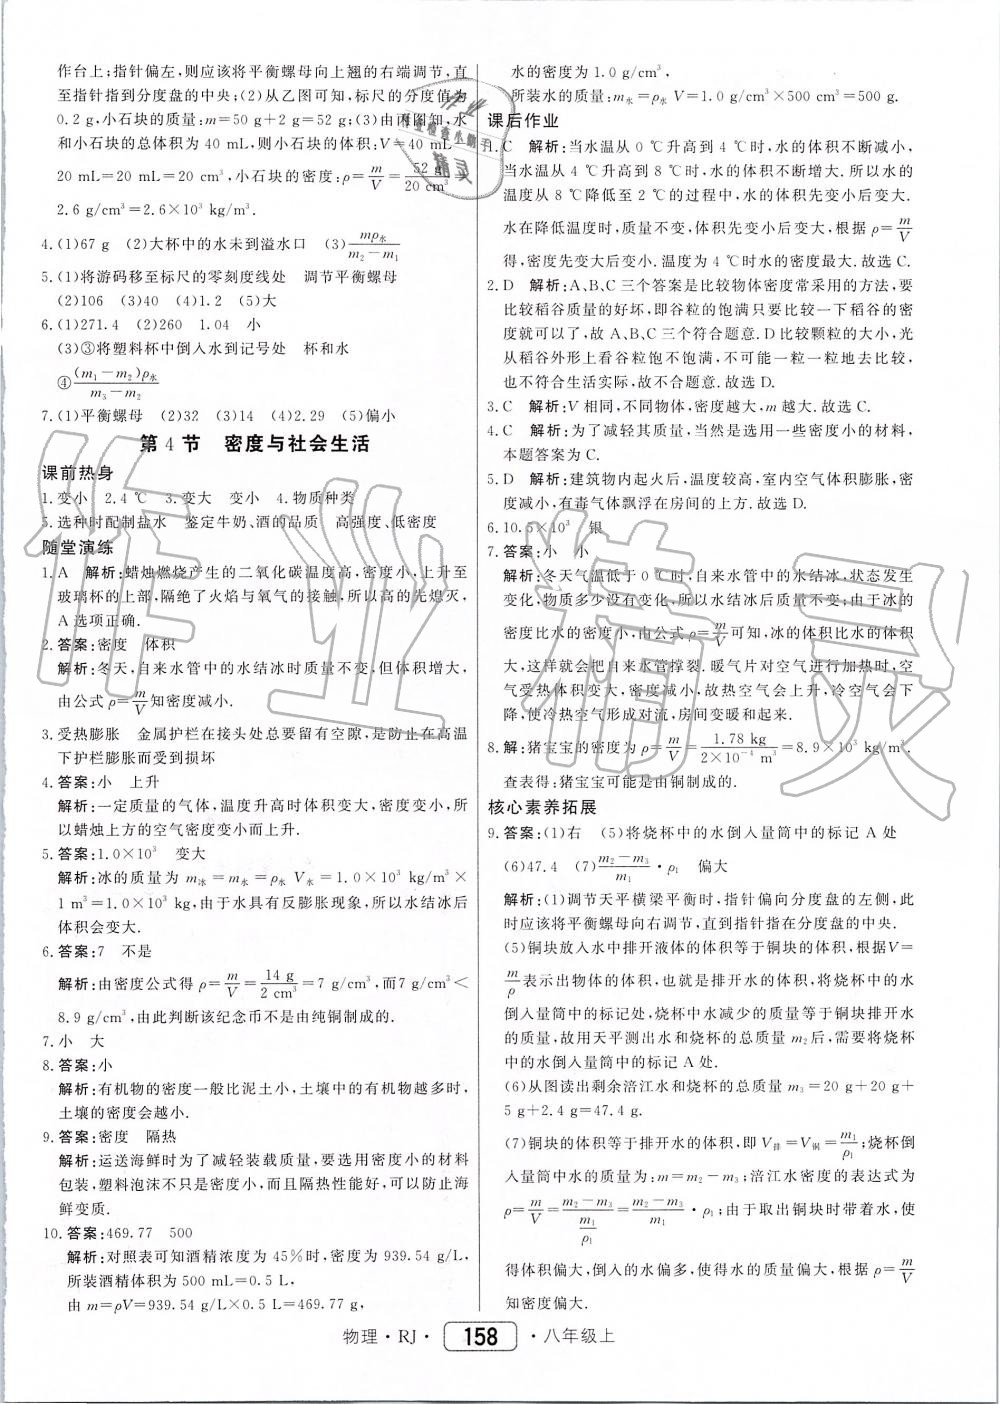 作台上;指针偏左,则应该将平衡螺母向上翘的右端调节,直
至指针指到分度盘的中央;(2)从乙图可知,标尺的分度值为
0.2 g,小石块的质量:m=50 g+2 g=52 g;(3)由丙图知,水
和小石块的总体积为 40 mL,则小石块的体积:V=40 mL-
20 mL=20 mL=20 cm³,小石块的密度:ρ=m/V=52 g/20 cm³=
2.6 g/cm³=2.6×10³ kg/m³.
4.(1)67 g (2)大杯中的水未到溢水口 (3)mρ水/(m₂-m₁)
5.(1)将游码移至标尺的零刻度线处 调节平衡螺母
(2)106 (3)40 (4)1.2 (5)大
6.(1)271.4 (2)260 1.04 小
(3)③将塑料杯中倒入水到记号处 杯和水
④(m₁-m₂)ρ水/(m₃-m₂)
7.(1)平衡螺母 (2)32 (3)14 (4)2.29 (5)偏小
第 4 节 密度与社会生活
课前热身
1.变小 2.4 ℃ 3.变大 变小 4.物质种类
5.选种时配制盐水 鉴定牛奶、酒的品质 高强度、低密度
随堂演练
1.A 解析:蜡烛燃烧产生的二氧化碳温度高,密度小,上升至
玻璃杯的上部,隔绝了火焰与氧气的接触,所以高的先熄灭,
A 选项正确.
2.答案:密度 体积
解析:冬天,自来水管中的水结冰时质量不变,但体积增大,
由公式 ρ=m/V知密度减小.
3.受热膨胀 金属护栏在接头处总要留有空隙,是防止在高温
下护栏膨胀而受到损坏
4.答案:小 上升
解析:一定质量的气体,温度升高时体积变大,密度变小,所
以蜡烛上方的空气密度变小而上升.
5.答案:1.0×10³ 变大
解析:冰的质量为 m冰=m水=ρ水 V水=1.0×10³ kg/m³×
1 m³=1.0×10³ kg,由于水具有反膨胀现象,所以水结冰后
体积会变大.
6.答案:7 不是
解析:由密度公式得 ρ=m/V=14 g/2 cm³=7 g/cm³,而7 g/cm³<
8.9 g/cm³,由此判断该纪念币不是由纯铜制成的.
7.小 大
8.答案:小
解析:有机物的密度一般比泥土小,土壤中的有机物越多时,
土壤的密度会越小.
9.答案:密度 隔热
解析:运送海鲜时为了减轻装载质量,要选用密度小的材料
包装,塑料泡沫不只是密度小,而且隔热性能好,可以防止海
鲜变质.
10.答案:469.77 500
解析:对照表可知酒精浓度为 45%时,密度为 939.54 g/L,
所装酒精体积为 500 mL=0.5 L,
由 m=ρV=939.54 g/L×0.5 L=469.77 g,
水的密度为 1.0 g/cm³,
所装水的质量:m水=ρ水 V=1.0 g/cm³×500 cm³=500 g.
课后作业
1.C 解析:当水温从 0 ℃升高到 4 ℃时,水的体积不断减小,
当水温从 4 ℃升高到 8 ℃时,水的体积不断增大.所以水的
温度从 8 ℃降低至 2 ℃的过程中,水的体积先变小后变大.
水在降低温度时,质量不变,体积先变小后变大,根据 ρ=m/V
得,密度先变大后变小.因此,温度为 4 ℃时水的密度最大.故选 C.
2.D 解析:A、B、C 三个答案是比较物体密度常采用的方法,要
比较稻谷质量的好坏,即谷粒的饱满只要比较一下稻谷的密
度就可以了,故 A、B、C三个符合题意.D 比较颗粒的大小,光
从稻谷外形上看谷粒饱不饱满,不可能一粒一粒地去比较,
也不符合生活实际,故不合题意.故选 D.
3.C 解析:V 相同,不同物体,密度越大,m 越大.故选 C.
4.C 解析:为了减轻其质量,当然是选用一些密度小的材料,
本题答案为 C.
5.D 解析:建筑物内起火后,温度较高,室内空气体积膨胀,密
度减小,有毒气体飘浮在房间的上方.故选 D.
6.10.5×10³ 银
7.答案:小 小
解析:冬天气温低于 0 ℃时,自来水管中的水结冰,状态发生
变化,物质多少没有变化,所以水结冰后质量不变;由于冰的
密度比水的密度小,由公式 ρ=m/V可知,冰的体积比水的体积
大,这样就会把自来水管撑裂.暖气片对空气进行加热时,空
气受热体积变大,密度减小,故热空气会上升,冷空气会下
降,使冷热空气形成对流,房间变暖和起来.
8.解:猪宝宝的密度为 ρ=m/V=1.78 kg/(2×10⁻⁴ m³)=8.9×10³ kg/m³.
查表得:猪宝宝可能是由铜制成的.
核心素养拓展
9.答案:(1)右 (5)将烧杯中的水倒入量筒中的标记 A 处
(6)47.4 (7)(m₂-m₃)/m₁·ρ₁ 偏大
解析:(1)调节天平横梁平衡时,指针偏向分度盘的左侧,此
时应该将平衡螺母向右调节,直到指针指在分度盘的中央.
(5)铜块放入水中排开液体的体积等于铜块的体积,根据V=
m/ρ表示出物体的体积,也就是排开水的体积,将烧杯中的水
倒入量筒中的标记处,烧杯中水减少的质量等于铜块排开水
的质量,故用天平测出水和烧杯的总质量 m₂后,需要将烧杯
中的水倒入量筒中的标记 A 处.
(6)从图读出剩余涪江水和烧杯的总质量 m₃=20 g+20 g+
5 g+2.4 g=47.4 g.
(7)铜块的体积等于排开水的体积,即 V排=V铜=m₁/ρ₁;烧杯倒
入量筒中水的质量为:m=m₂-m₃;涪江水密度的表达式为
ρ=m/V=(m₂-m₃)/(m₁/ρ₁)=(m₂-m₃)/m₁·ρ₁;由于取出铜块时带着水,使
得体积偏大,倒入的水偏多,使得水的质量偏大,根据 ρ=m/V
知密度偏大.
物理·RJ· 158 ·八年级上
作业精灵